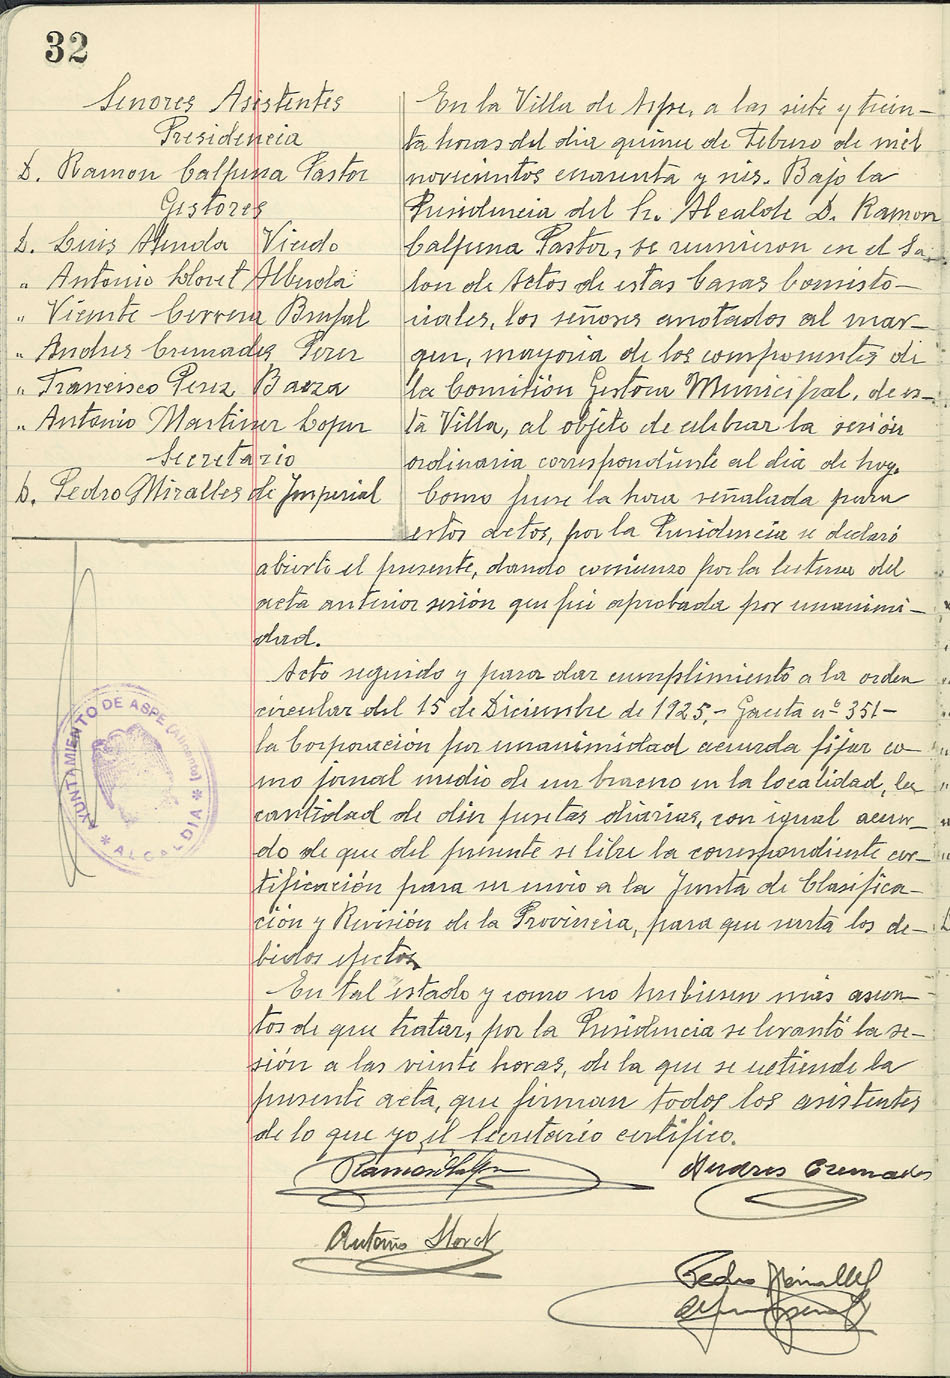 32
Senores Asistentes
Presidencia
D. Ramon Calpena Pastor
Gestores
D. Luis Abenola Viudo
" Antonio Lloret Alberola
" Vicente Cerrera Brufal
" Andres Cremades Perez
" Francisco Perez Baeza
" Antonio Martinez Lopez
Secretario
D. Pedro Miralles de Imperial
En la Villa de Aspe, a las siete y trein-
ta horas del dia quince de Febrero de mil
novecientos cuarenta y seis. Bajo la
Presidencia del Sr. Alcalde D. Ramon
Calpena Pastor, se reunieron en el Sa-
lon de Actos de estas Casas Consisto-
riales, los señores anotados al mar-
gen, mayoria de los componentes de
la Comisión Gestora Municipal, de es-
ta Villa, al objeto de celebrar la sesión
ordinaria correspondiente al dia de hoy.
Como fuese la hora señalada para
estos actos, por la Presidencia se declaró
abierto el presente, dando comienzo por la lectura del
acta anterior sesión que fué aprobada por unanimi-
dad.
Acto seguido y para dar cumplimiento a la orden
circular del 15 de Diciembre de 1925,- Gaceta nº 351-
la Corporación por unanimidad acuerda fijar co-
mo jornal medio de un bracero en la localidad, la
cantidad de diez pesetas diarias, con igual acuer-
do de que del presente se libre la correspondiente cer-
tificación para su envio a la Junta de Clasifica-
ción y Revisión de la Provincia, para que surta los de-
bidos efectos.
En tal estado y como no hubiesen más asun-
tos de que tratar, por la Presidencia se levantó la se-
sión a las veinte horas, de la que se extiende la
presente acta, que firman todos los asistentes
de lo que yo, el Secretario certifico.
AYUNTAMIENTO DE ASPE (Alicante)
* ALCALDIA *
Ramon Calpena
Andres Cremades
Antonio Lloret
Pedro Miralles
de Imperial